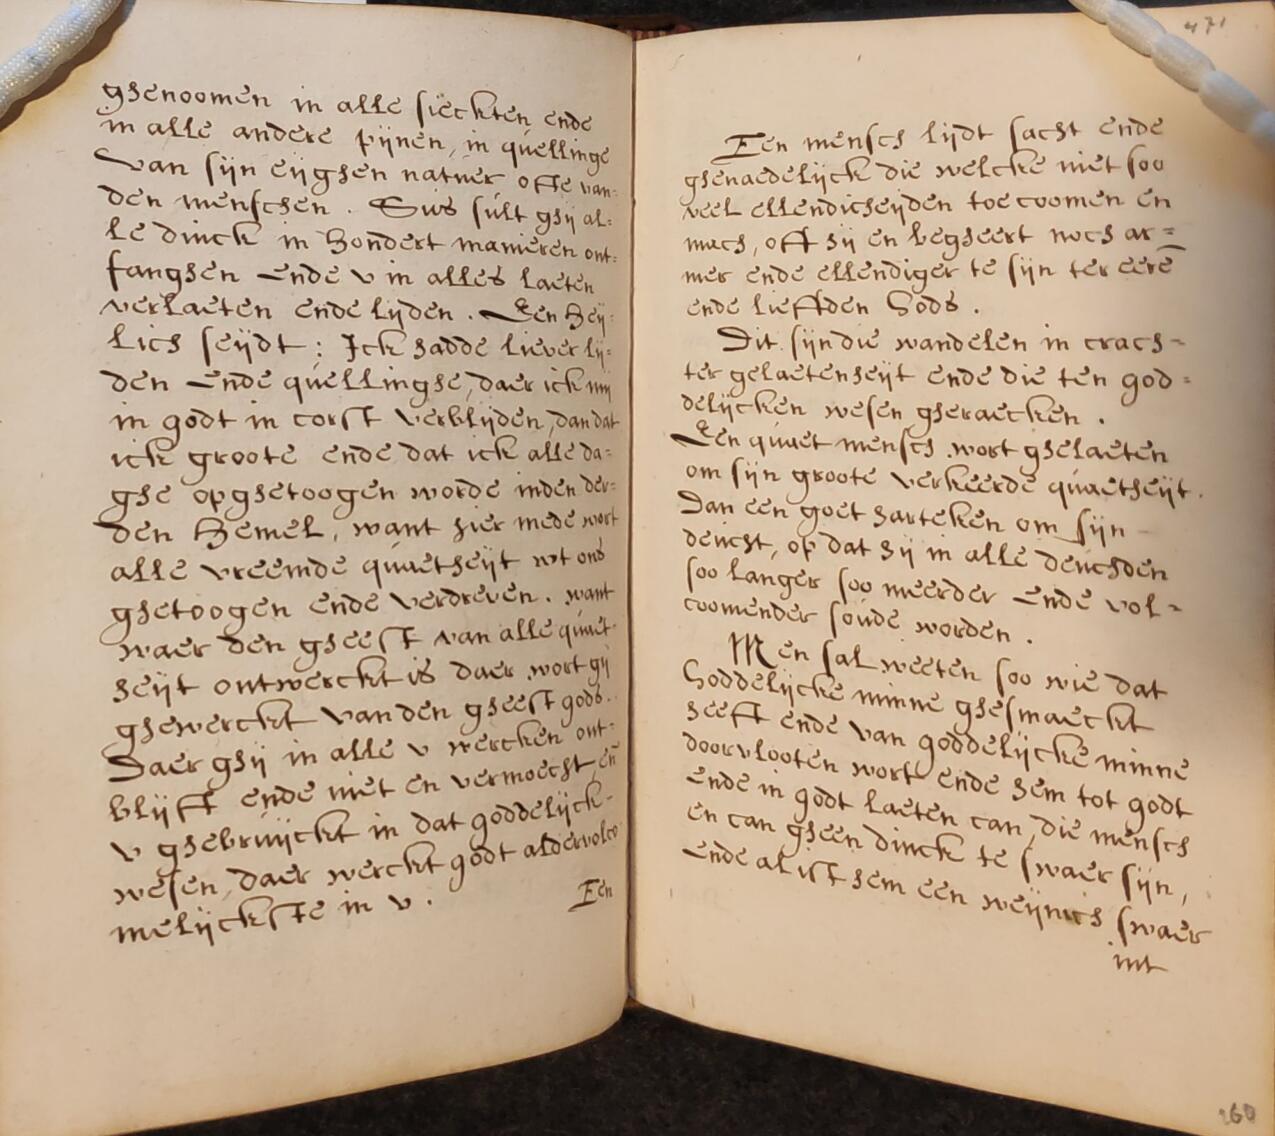 ghenoomen in alle sieckten ende
in alle andere pijnen, in quellinge
van sijn eijghen natuer ofte van=
den menschen. Sus sult ghij al=
le dinck in hondert manieren ont=
fanghen ende v in alles laeten
verlaeten ende lijden. Een heij=
lich seijdt: Ick hadde liever lij=
den ende quellinghe, daer ick mij
in godt in corst verblijden, dan dat
ick groote ende dat ick alle da=
ghe opghetoogen worde inden der=
den hemel, want hier mede wort
alle vreemde quaetheijt wt ons
ghetoogen ende verdreven. want
waer den gheest van alle quaet=
heijt ontwerckt is daer wort gij
ghewerckt van den gheest gods.
Daer ghij in alle v wercken ont=
blijft ende niet en vermoecht, en̄
v ghebruijckt in dat goddelijck=
wesen, daer werckt godt aldervolco
melijckste in v.
Een
471
Een mensch lijdt sacht ende
ghenaedelijck die welcke niet soo
veel ellendicheijden toe coomen en
mach, oft hij en begheert noch ar=
mer ende ellendiger te sijn ter eerē
ende liefften Gods.
Dit sijn die wandelen in crach=
ter gelaetenheijt ende die ten god=
delijcken wesen gheraecken.
Een quaet mensch wort ghelaeten
om sijn groote verkeerde quaetheijt.
Dan een goet harteken om sijn
deucht, op dat hij in alle deuchden
soo langer soo meerder ende vol=
coomender soude worden.
Men sal weeten soo wie dat
Goddelijcke minne ghesmaeckt
heeft ende van goddelijcke minne
doorvlooten wort ende hem tot godt
ende in godt laeten can, die mensch
en can gheen dinck te swaer sijn,
ende al ist hem een weijnich swaer
int
260